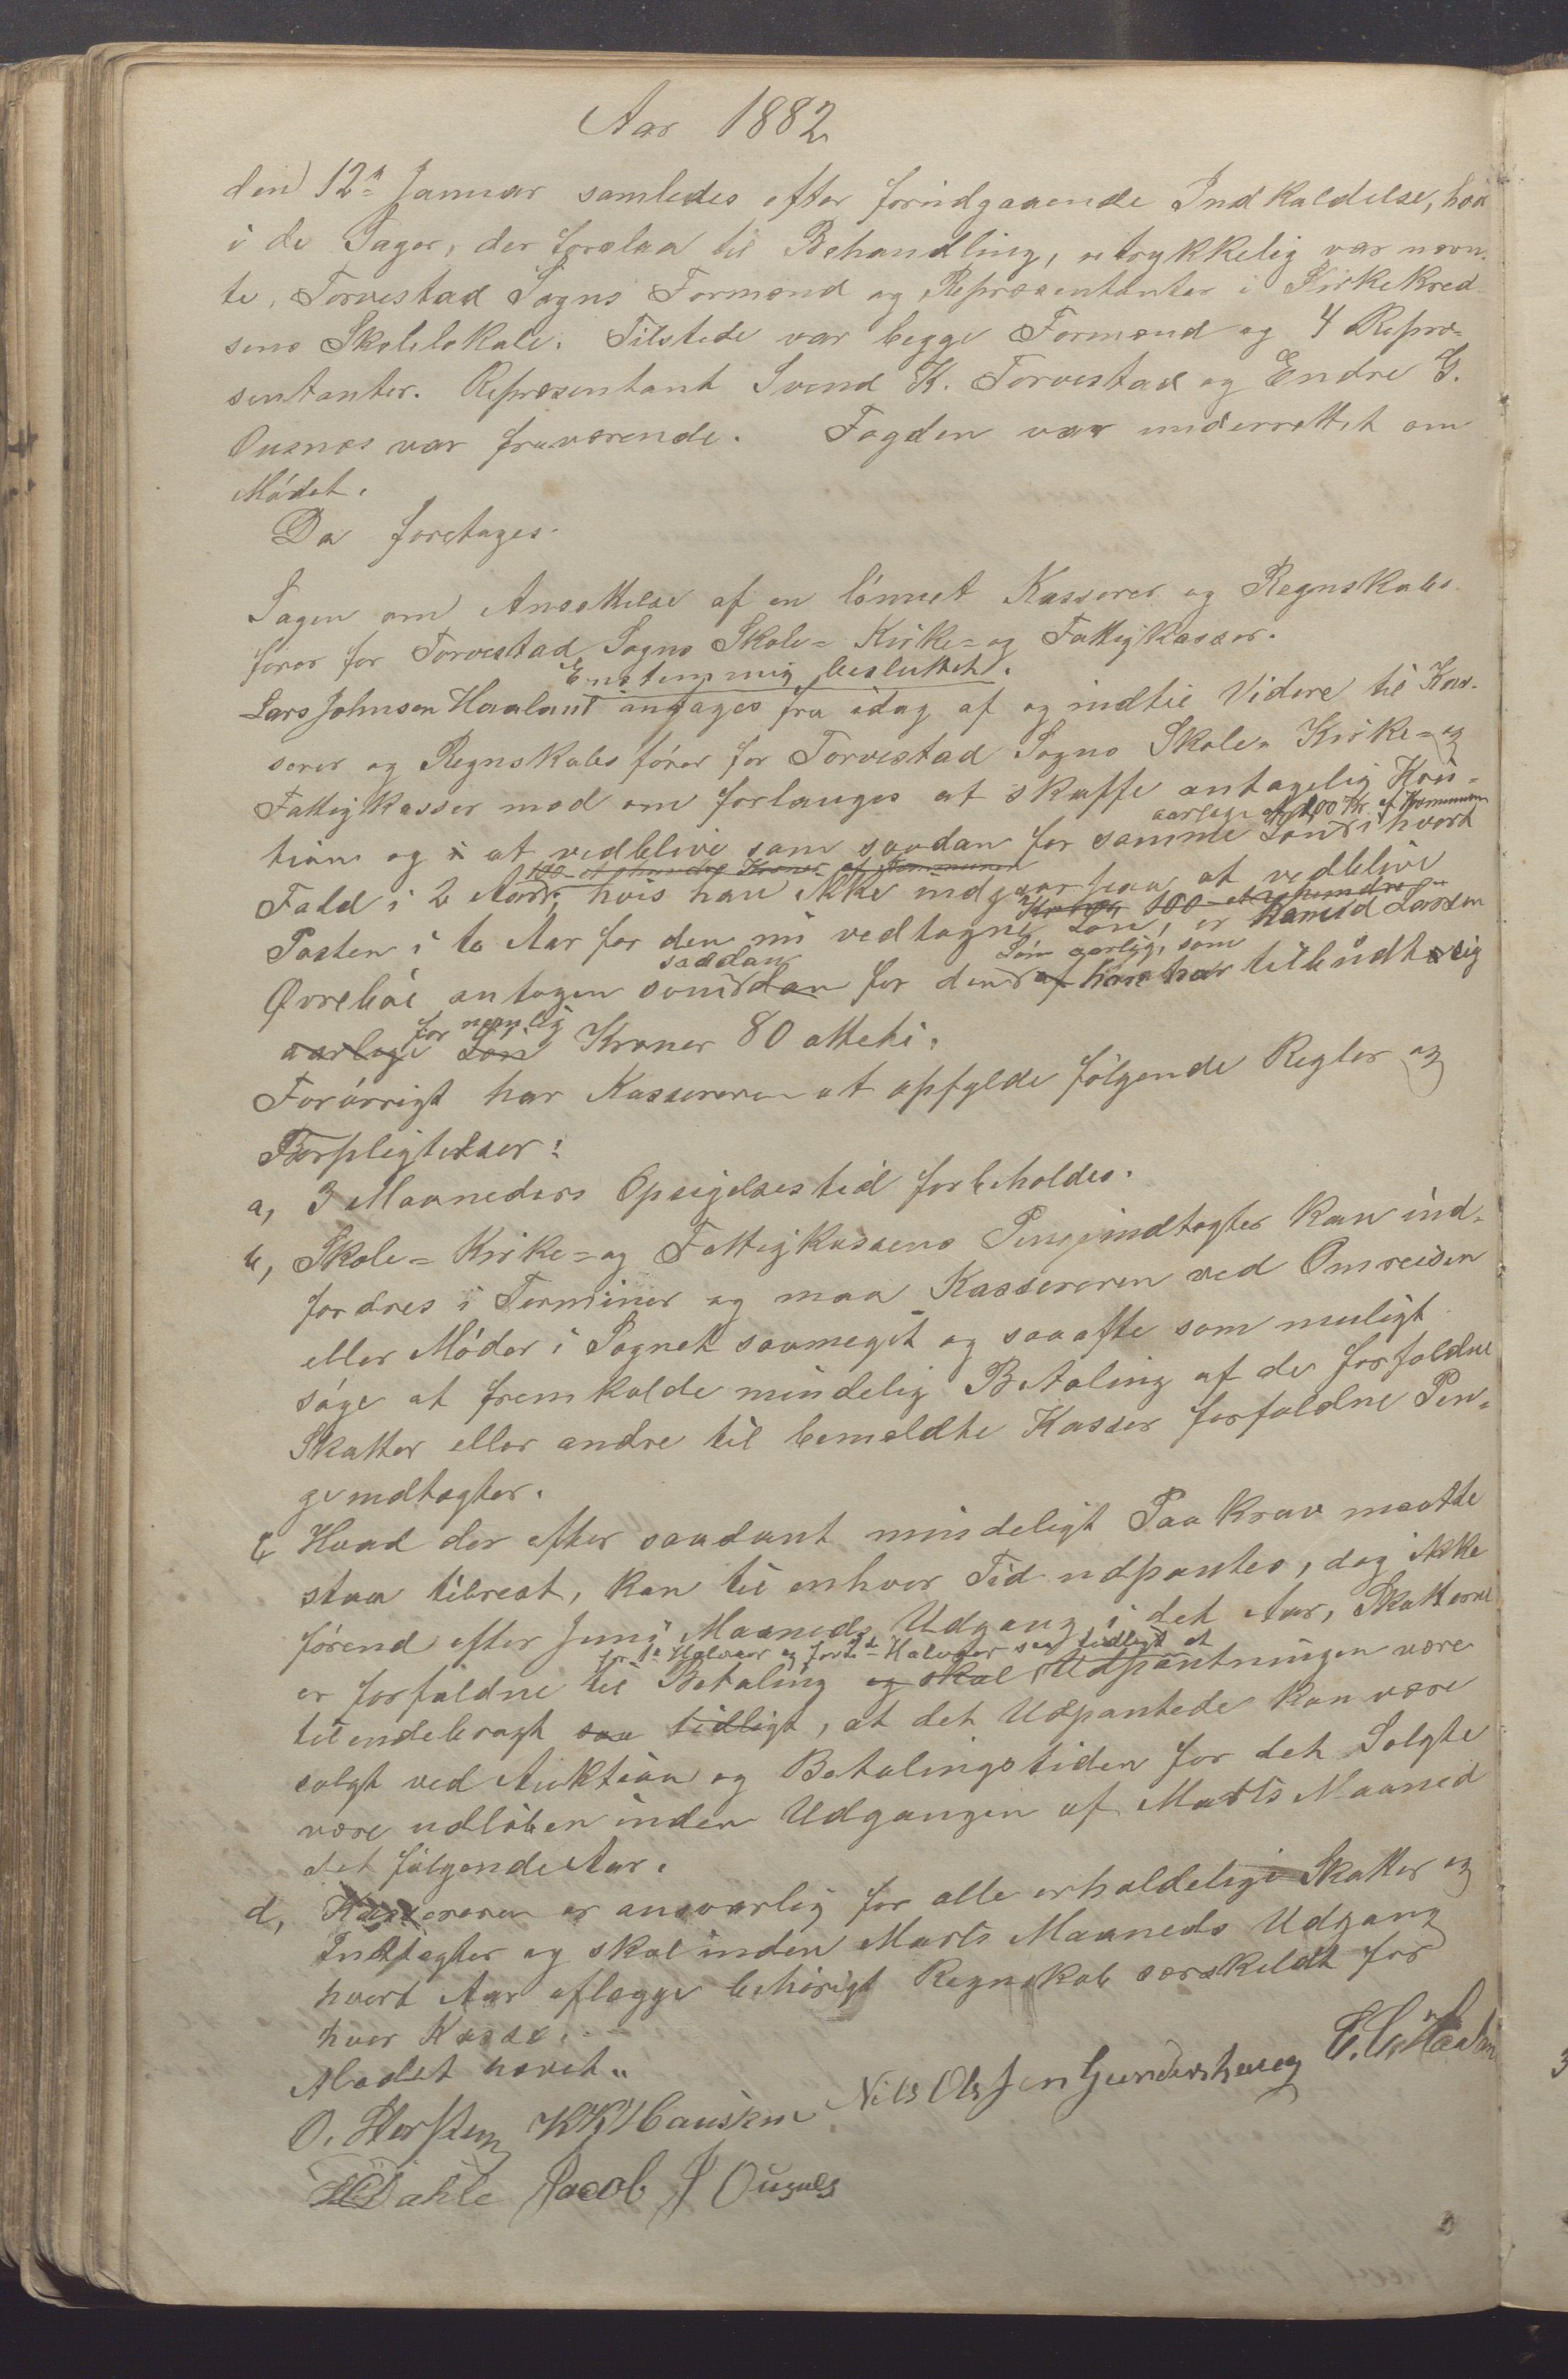 Aar 1882
den 12te Januar samledes efter foridgaaende Indkaldelse, hvor
i de Sager, der forelaa til Behandling, utrykkelig var nævn-
te, Torvestad Sogns Formænd og Repræsentanter i Kirkekred-
sens Skolelokale. Tilstede var begge Formænd og 4 Repræ-
sentanter. Repræsentant Svend K. Torvestad og Endre G.
Ousnæs var fraværende. Fogden var underrettet om
Mødet.
Da foretages.
Sagen om Ansættelse af en lønnet Kasserer og Regnskabs-
fører for Torvestad Sogns Skole= Kirke= og Fattigkasser.
Enstemmig besluttet.
Lars Johnsen Haaland angages fra idag af og indtil Videre til Kas-
serer og Regnskabsfører for Torvestad Sogns Skole= Kirke= og
Fattigkasser mod om forlanges at skaffe antagelig Kau-
aarlige 100 Kr. af Kommunen
tion og at vedblive som saadan for samme Løn i hvert
100 et hundre Kroner af Kommunen
Fald i 2 Aar; hvis han ikke indgaar paa at vedblive
100 et hundre
Posten i to Aar for den nu vedtagne Løn, er Larssen
saadan Løn aarlig, som
Øvrebøe antagen som for den af han har tilbudt sig
for nemlig
aarlige Løn Kroner 80 otteti.
Forøvrigt har Kassereren at opfylde følgende Regler og
Forpligtelser:
a, 3 Maaneders Opsigelsestid forbeholdes.
b, Skole= Kirke= og Fattigkassens Pengeindtægter kan ind-
fordres i Terminer og maa Kassereren ved Omreisen
eller Møder i Sognet saameget og saaofte som muligt
søge at fremkalde mindelig Betaling af de forfaldne
Skatter eller andre til bemeldte Kasser forfaldne Pen-
geindtægter.
c, Hvad der efter saadant mindeligt Paakrav maatte
staa tilrest, kan til enhver Tid udpantes, dog ikke
førend efter Juni Maaneds Udgang i det Aar, Skatterne
for 1ste Halvaar og for 2de Halvaar saa tidligt at
er forfaldne til Betaling og skal Udpantningen være
tilendebragt saa tidligt, at det Udpantede kan være
solgt ved Auktion og Betalingstiden for det Solgte
være udløben inden Udgangen af Marts Maaned
det følgende Aar.
d, Kassereren er ansvarlig for alle erholdelige Skatter og
Indtægter og skal inden Marts Maaneds Udgang
hvert Aar aflægge behørigt Regnskab særskildt for
hver Kasse.
Mødet hævet.
O. Storsten K K Hausken Nils Olsen Gundershaug
Dahle Jacob J Ousnes